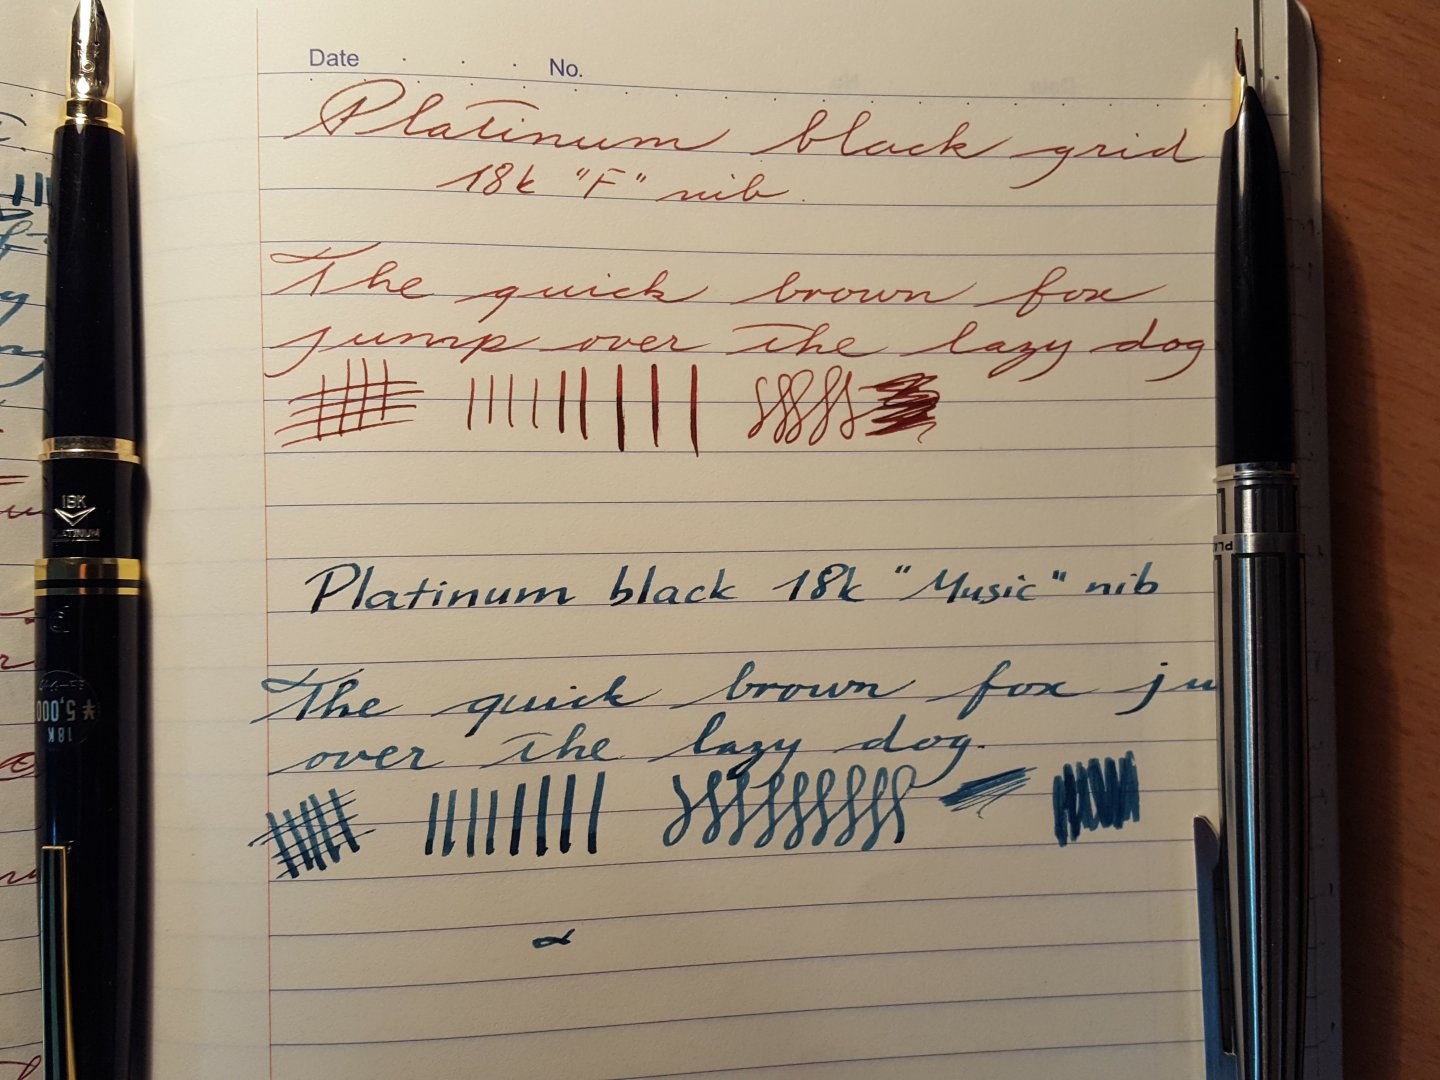 Date No.
Platinum black grid
18k "F" nib.
The quick brown fox
jump over the lazy dog
Platinum black 18k "Music" nib
The quick brown fox ju
over the lazy dog.
18K
PLATINUM
¥5,000
18K
PL